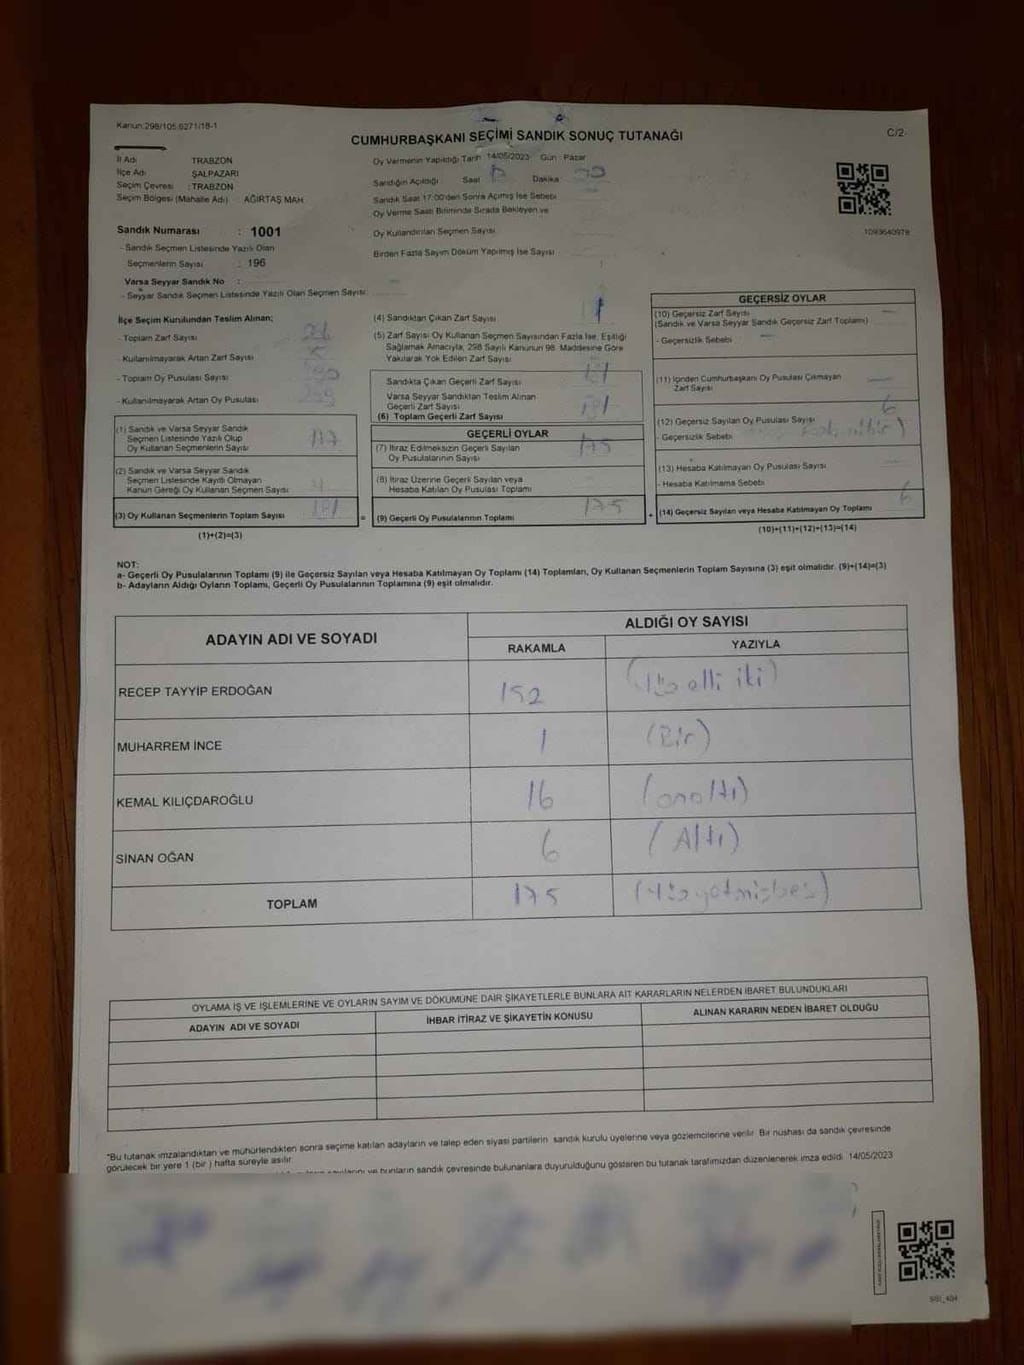 Kanun:298/105,6271/18-1
CUMHURBAŞKANI SEÇİMİ SANDIK SONUÇ TUTANAĞI
C/2-
İl Adı TRABZON
İlçe Adı ŞALPAZARI
Seçim Çevresi : TRABZON
Seçim Bölgesi (Mahalle Adı) : AĞIRTAŞ MAH.
Oy Vermenin Yapıldığı Tarih 14/05/2023 Gün Pazar
Sandığın Açıldığı Saat Dakika
Sandık Saat 17:00'den Sonra Açımış İse Sebebi
Oy Verme Saati Bitiminde Sırada Bekleyen ve
Oy Kullandırılan Seçmen Sayısı
Birden Fazla Sayım Döküm Yapılmış İse Sayısı
1093640978
Sandık Numarası : 1001
- Sandık Seçmen Listesinde Yazılı Olan
Seçmenlerin Sayısı : 196
Varsa Seyyar Sandık No :
- Seyyar Sandık Seçmen Listesinde Yazılı Olan Seçmen Sayısı:
İlçe Seçim Kurulundan Teslim Alınan;
- Toplam Zarf Sayısı
- Kullanılmayarak Artan Zarf Sayısı
- Toplam Oy Pusulası Sayısı
- Kullanılmayarak Artan Oy Pusulası
(1) Sandık ve Varsa Seyyar Sandık
Seçmen Listesinde Yazılı Olup
Oy Kullanan Seçmenlerin Sayısı 177
(2) Sandık ve Varsa Seyyar Sandık
Seçmen Listesinde Kayıtlı Olmayan
Kanun Gereği Oy Kullanan Seçmen Sayısı 4
(3) Oy Kullanan Seçmenlerin Toplam Sayısı 181
(1)+(2)=(3)
(4) Sandıktan Çıkan Zarf Sayısı
(5) Zarf Sayısı Oy Kullanan Seçmen Sayısından Fazla İse, Eşitliği
Sağlamak Amacıyla, 298 Sayılı Kanunun 98. Maddesine Göre
Yakılarak Yok Edilen Zarf Sayısı
Sandıkta Çıkan Geçerli Zarf Sayısı 181
Varsa Seyyar Sandıktan Teslim Alınan
Geçerli Zarf Sayısı
(6) Toplam Geçerli Zarf Sayısı 181
GEÇERLİ OYLAR
(7) İtiraz Edilmeksizin Geçerli Sayılan
Oy Pusulalarının Sayısı 175
(8) İtiraz Üzerine Geçerli Sayılan veya
Hesaba Katılan Oy Pusulası Toplamı
= (9) Geçerli Oy Pusulalarının Toplamı 175
GEÇERSİZ OYLAR
(10) Geçersiz Zarf Sayısı
(Sandık ve Varsa Seyyar Sandık Geçersiz Zarf Toplamı)
- Geçersizlik Sebebi
(11) İçinden Cumhurbaşkanı Oy Pusulası Çıkmayan
Zarf Sayısı
(12) Geçersiz Sayılan Oy Pusulası Sayısı 6
- Geçersizlik Sebebi
(13) Hesaba Katılmayan Oy Pusulası Sayısı
- Hesaba Katılmama Sebebi
+ (14) Geçersiz Sayılan veya Hesaba Katılmayan Oy Toplamı 6
(10)+(11)+(12)+(13)=(14)
NOT:
a- Geçerli Oy Pusulalarının Toplamı (9) ile Geçersiz Sayılan veya Hesaba Katılmayan Oy Toplamı (14) Toplamları, Oy Kullanan Seçmenlerin Toplam Sayısına (3) eşit olmalıdır. (9)+(14)=(3)
b- Adayların Aldığı Oyların Toplamı, Geçerli Oy Pusulalarının Toplamına (9) eşit olmalıdır.
ADAYIN ADI VE SOYADI
ALDIĞI OY SAYISI
RAKAMLA YAZIYLA
RECEP TAYYİP ERDOĞAN 152 (Yüz elli iki)
MUHARREM İNCE 1 (Bir)
KEMAL KILIÇDAROĞLU 16 (onaltı)
SİNAN OĞAN 6 (Altı)
TOPLAM 175 (Yüzyetmişbeş)
OYLAMA İŞ VE İŞLEMLERİNE VE OYLARIN SAYIM VE DÖKÜMÜNE DAİR ŞİKAYETLERLE BUNLARA AİT KARARLARIN NELERDEN İBARET BULUNDUKLARI
ADAYIN ADI VE SOYADI İHBAR İTİRAZ VE ŞİKAYETİN KONUSU ALINAN KARARIN NEDEN İBARET OLDUĞU
*Bu tutanak imzalandıktan ve mühürlendikten sonra seçime katılan adayların ve talep eden siyasi partilerin sandık kurulu üyelerine veya gözlemcilerine verilir. Bir nüshası da sandık çevresinde
görülecek bir yere 1 (bir ) hafta süreyle asılır.
ve bunların sandık çevresinde bulunanlara duyurulduğunu gösteren bu tutanak tarafımızdan düzenlenerek imza edildi. 14/05/2023